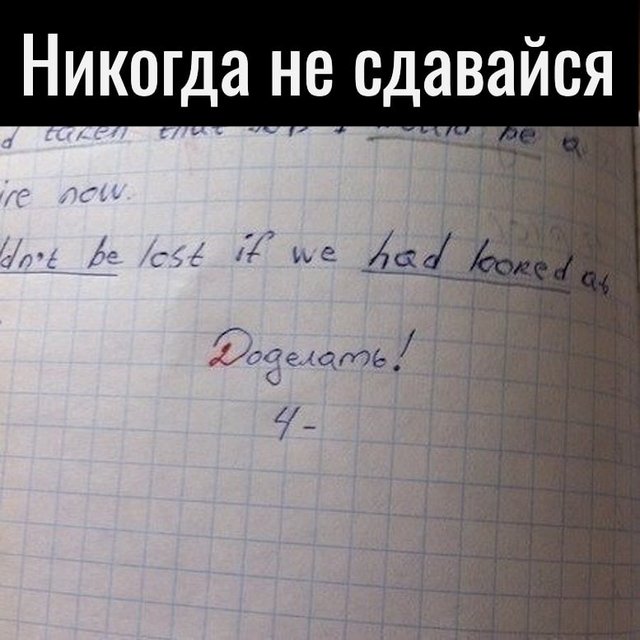 Никогда не сдавайся
taken that I would be a
now.
be lost if we had looked at
Доделать!
4-